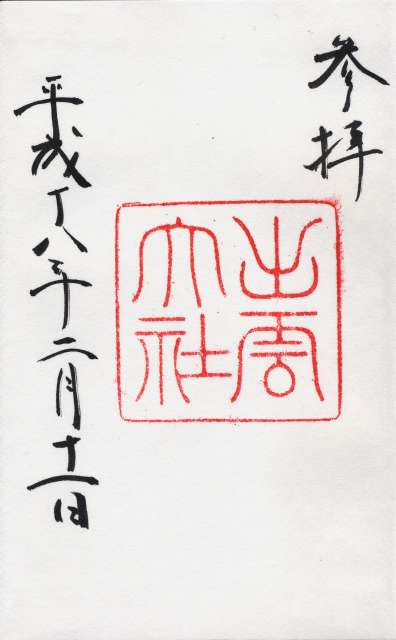 参拝
出雲
大社
平成十八年二月十一日